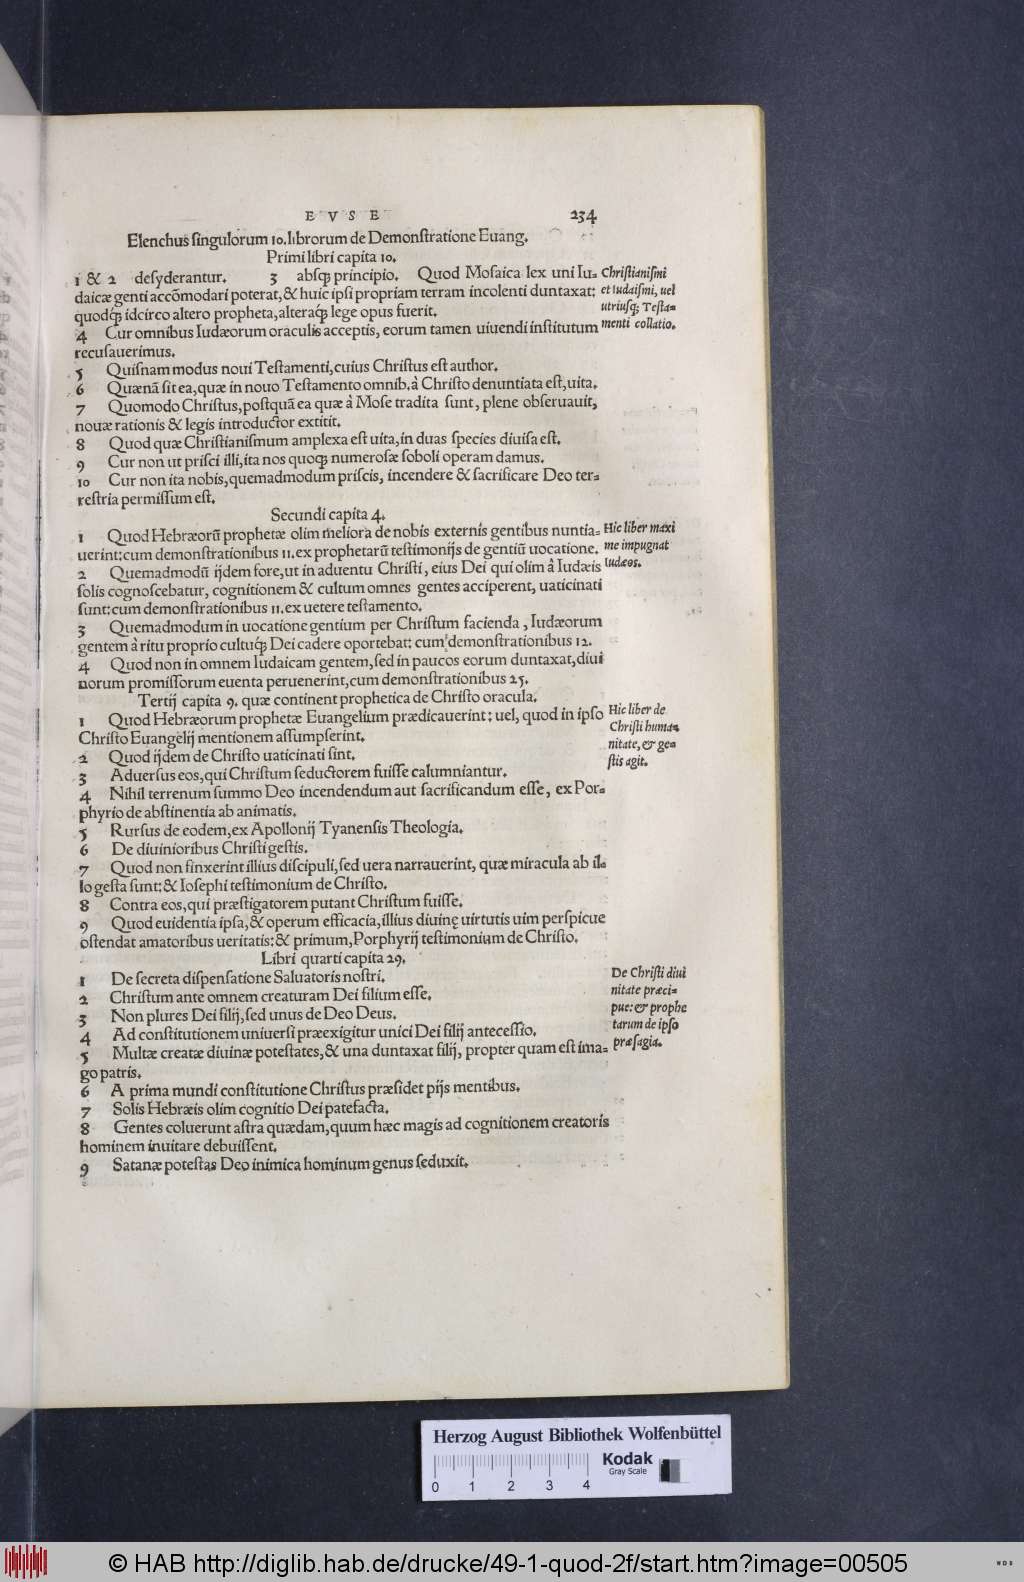 E V S E 234
Elenchus singulorum 10. librorum de Demonstratione Euang.
Primi libri capita 10.
1 & 2 desyderantur. 3 absq; principio. Quod Mosaica lex uni Iu-
daicæ genti accōmodari poterat, & huic ipsi propriam terram incolenti duntaxat:
quodq; idcirco altero propheta, alteraq; lege opus fuerit.
4 Cur omnibus Iudæorum oraculis acceptis, eorum tamen uiuendi institutum
recusauerimus.
5 Quisnam modus noui Testamenti, cuius Christus est author.
6 Quænā sit ea, quæ in nouo Testamento omnib. à Christo denuntiata est, uita.
7 Quomodo Christus, postquā ea quæ à Mose tradita sunt, plene obseruauit,
nouæ rationis & legis introductor extitit.
8 Quod quæ Christianismum amplexa est uita, in duas species diuisa est.
9 Cur non ut prisci illi, ita nos quoq; numerosæ soboli operam damus.
10 Cur non ita nobis, quemadmodum priscis, incendere & sacrificare Deo ter-
restria permissum est.
Christianismi
et Iudaismi, uel
utriusq; Testa-
menti collatio.
Secundi capita 4.
1 Quod Hebræorū prophetæ olim meliora de nobis externis gentibus nuntia-
uerint: cum demonstrationibus 11. ex prophetarū testimonijs de gentiū uocatione.
2 Quemadmodū ijdem fore, ut in aduentu Christi, eius Dei qui olim à Iudæis
solis cognoscebatur, cognitionem & cultum omnes gentes acciperent, uaticinati
sunt: cum demonstrationibus 11. ex uetere testamento.
3 Quemadmodum in uocatione gentium per Christum facienda, Iudæorum
gentem à ritu proprio cultuq́; Dei cadere oportebat: cum demonstrationibus 12.
4 Quod non in omnem Iudaicam gentem, sed in paucos eorum duntaxat, diui
norum promissorum euenta peruenerint, cum demonstrationibus 25.
Hic liber maxi
me impugnat
Iudæos.
Tertij capita 9. quæ continent prophetica de Christo oracula.
1 Quod Hebræorum prophetæ Euangelium prædicauerint: uel, quod in ipso
Christo Euangelij mentionem assumpserint.
2 Quod ijdem de Christo uaticinati sint.
3 Aduersus eos, qui Christum seductorem fuisse calumniantur.
4 Nihil terrenum summo Deo incendendum aut sacrificandum esse, ex Por-
phyrio de abstinentia ab animatis.
5 Rursus de eodem, ex Apollonij Tyanensis Theologia.
6 De diuinioribus Christi gestis.
7 Quod non finxerint illius discipuli, sed uera narrauerint, quæ miracula ab il-
lo gesta sunt: & Iosephi testimonium de Christo.
8 Contra eos, qui præstigatorem putant Christum fuisse.
9 Quod euidentia ipsa, & operum efficacia, illius diuinę uirtutis uim perspicue
ostendat amatoribus ueritatis: & primum, Porphyrij testimonium de Christo.
Hic liber de
Christi huma-
nitate, & ge-
stis agit.
Libri quarti capita 29.
1 De secreta dispensatione Saluatoris nostri.
2 Christum ante omnem creaturam Dei filium esse.
3 Non plures Dei filij, sed unus de Deo Deus.
4 Ad constitutionem uniuersi præexigitur unici Dei filij antecessio.
5 Multæ creatæ diuinæ potestates, & una duntaxat filij, propter quam est ima-
go patris.
6 A prima mundi constitutione Christus præsidet pijs mentibus.
7 Solis Hebræis olim cognitio Dei patefacta.
8 Gentes coluerunt astra quædam, quum hæc magis ad cognitionem creatoris
hominem inuitare debuissent.
9 Satanæ potestas Deo inimica hominum genus seduxit.
De Christi diui
nitate præci-
pue: & prophe
tarum de ipso
præsagia.
Herzog August Bibliothek Wolfenbüttel
Kodak
Gray Scale
0 1 2 3 4
© HAB http://diglib.hab.de/drucke/49-1-quod-2f/start.htm?image=00505